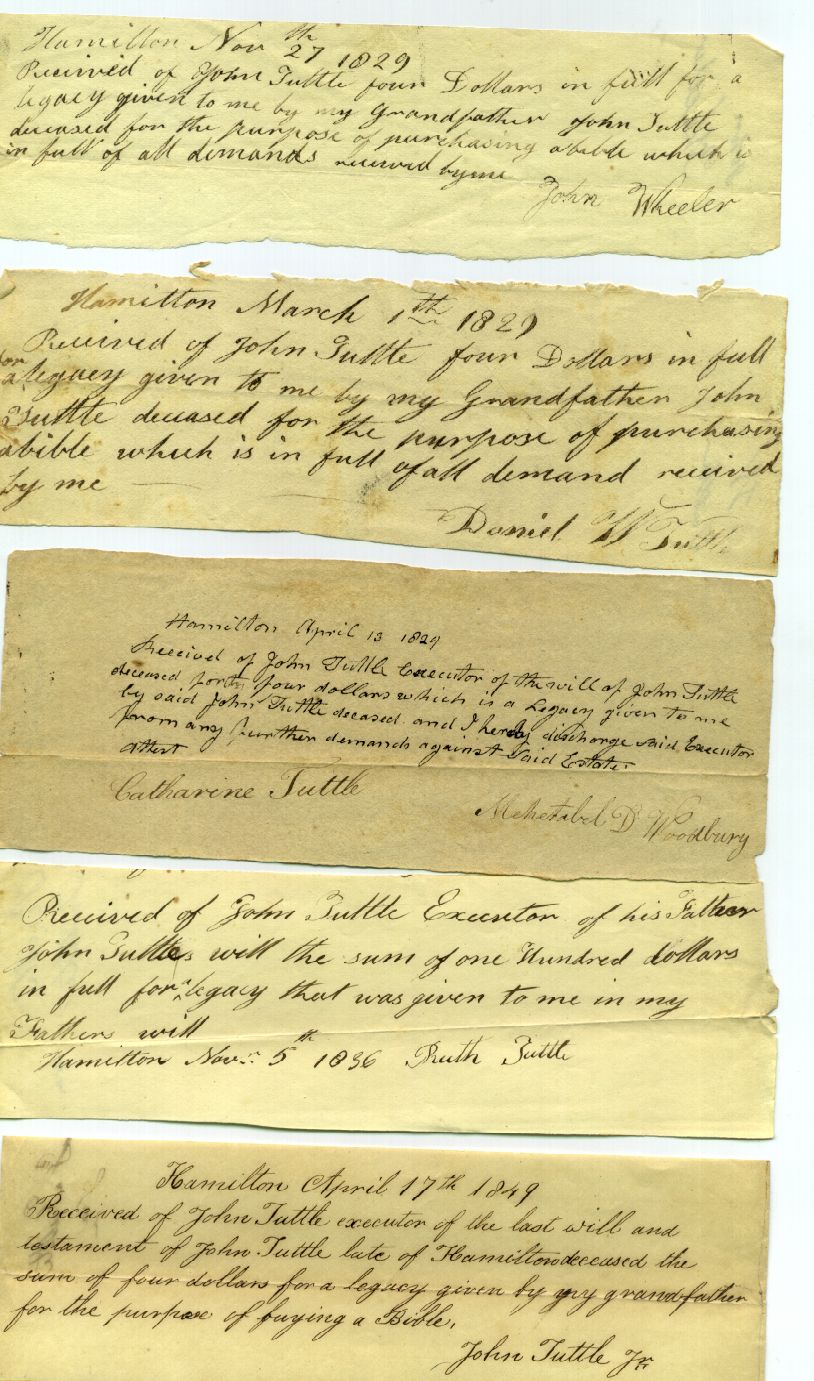 Hamilton Nov th 27 1829
Received of John Tuttle four Dollars in full for a
legacy given to me by my Grandfather John Tuttle
deceased for the purpose of purchasing abible which is
in full of all demands received by me
John Wheeler
Hamilton March 1th 1829
Received of John Tuttle four Dollars in full
for
a legacy given to me by my Grandfather John
Tuttle deceased for the purpose of purchasing
abible which is in full of all demand received
by me
Daniel W Tuttle
Hamilton April 13 1829
Received of John Tuttle Executor of the will of John Tuttle
deceased forty four dollars which is a Legacy given to me
by said John Tuttle deceased and I hereby discharge said Executor
from any further demands against said Estate
attest
Catharine Tuttle
Mehetabel D Woodbury
Received of John Tuttle Executor of his Father
John Tuttles will the sum of one Hundred dollars
in full for legacy that was given to me in my
Fathers will
Hamilton Nov. 5th 1836 Ruth Tuttle
Hamilton April 17th 1849
Received of John Tuttle executor of the last will and
testament of John Tuttle late of Hamilton deceased the
sum of four dollars for a legacy given by my grandfather
for the purpose of buying a Bible.
John Tuttle Jr